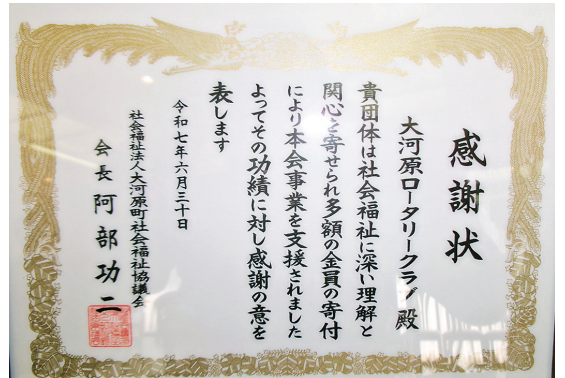 感謝状
大河原ロータリークラブ 殿
貴団体は社会福祉に深い理解と
関心を寄せられ多額の金員の寄付
により本会事業を支援されました
よってその功績に対し感謝の意を
表します
令和七年六月三十日
社会福祉法人大河原町社会福祉協議会
会長 阿部功二